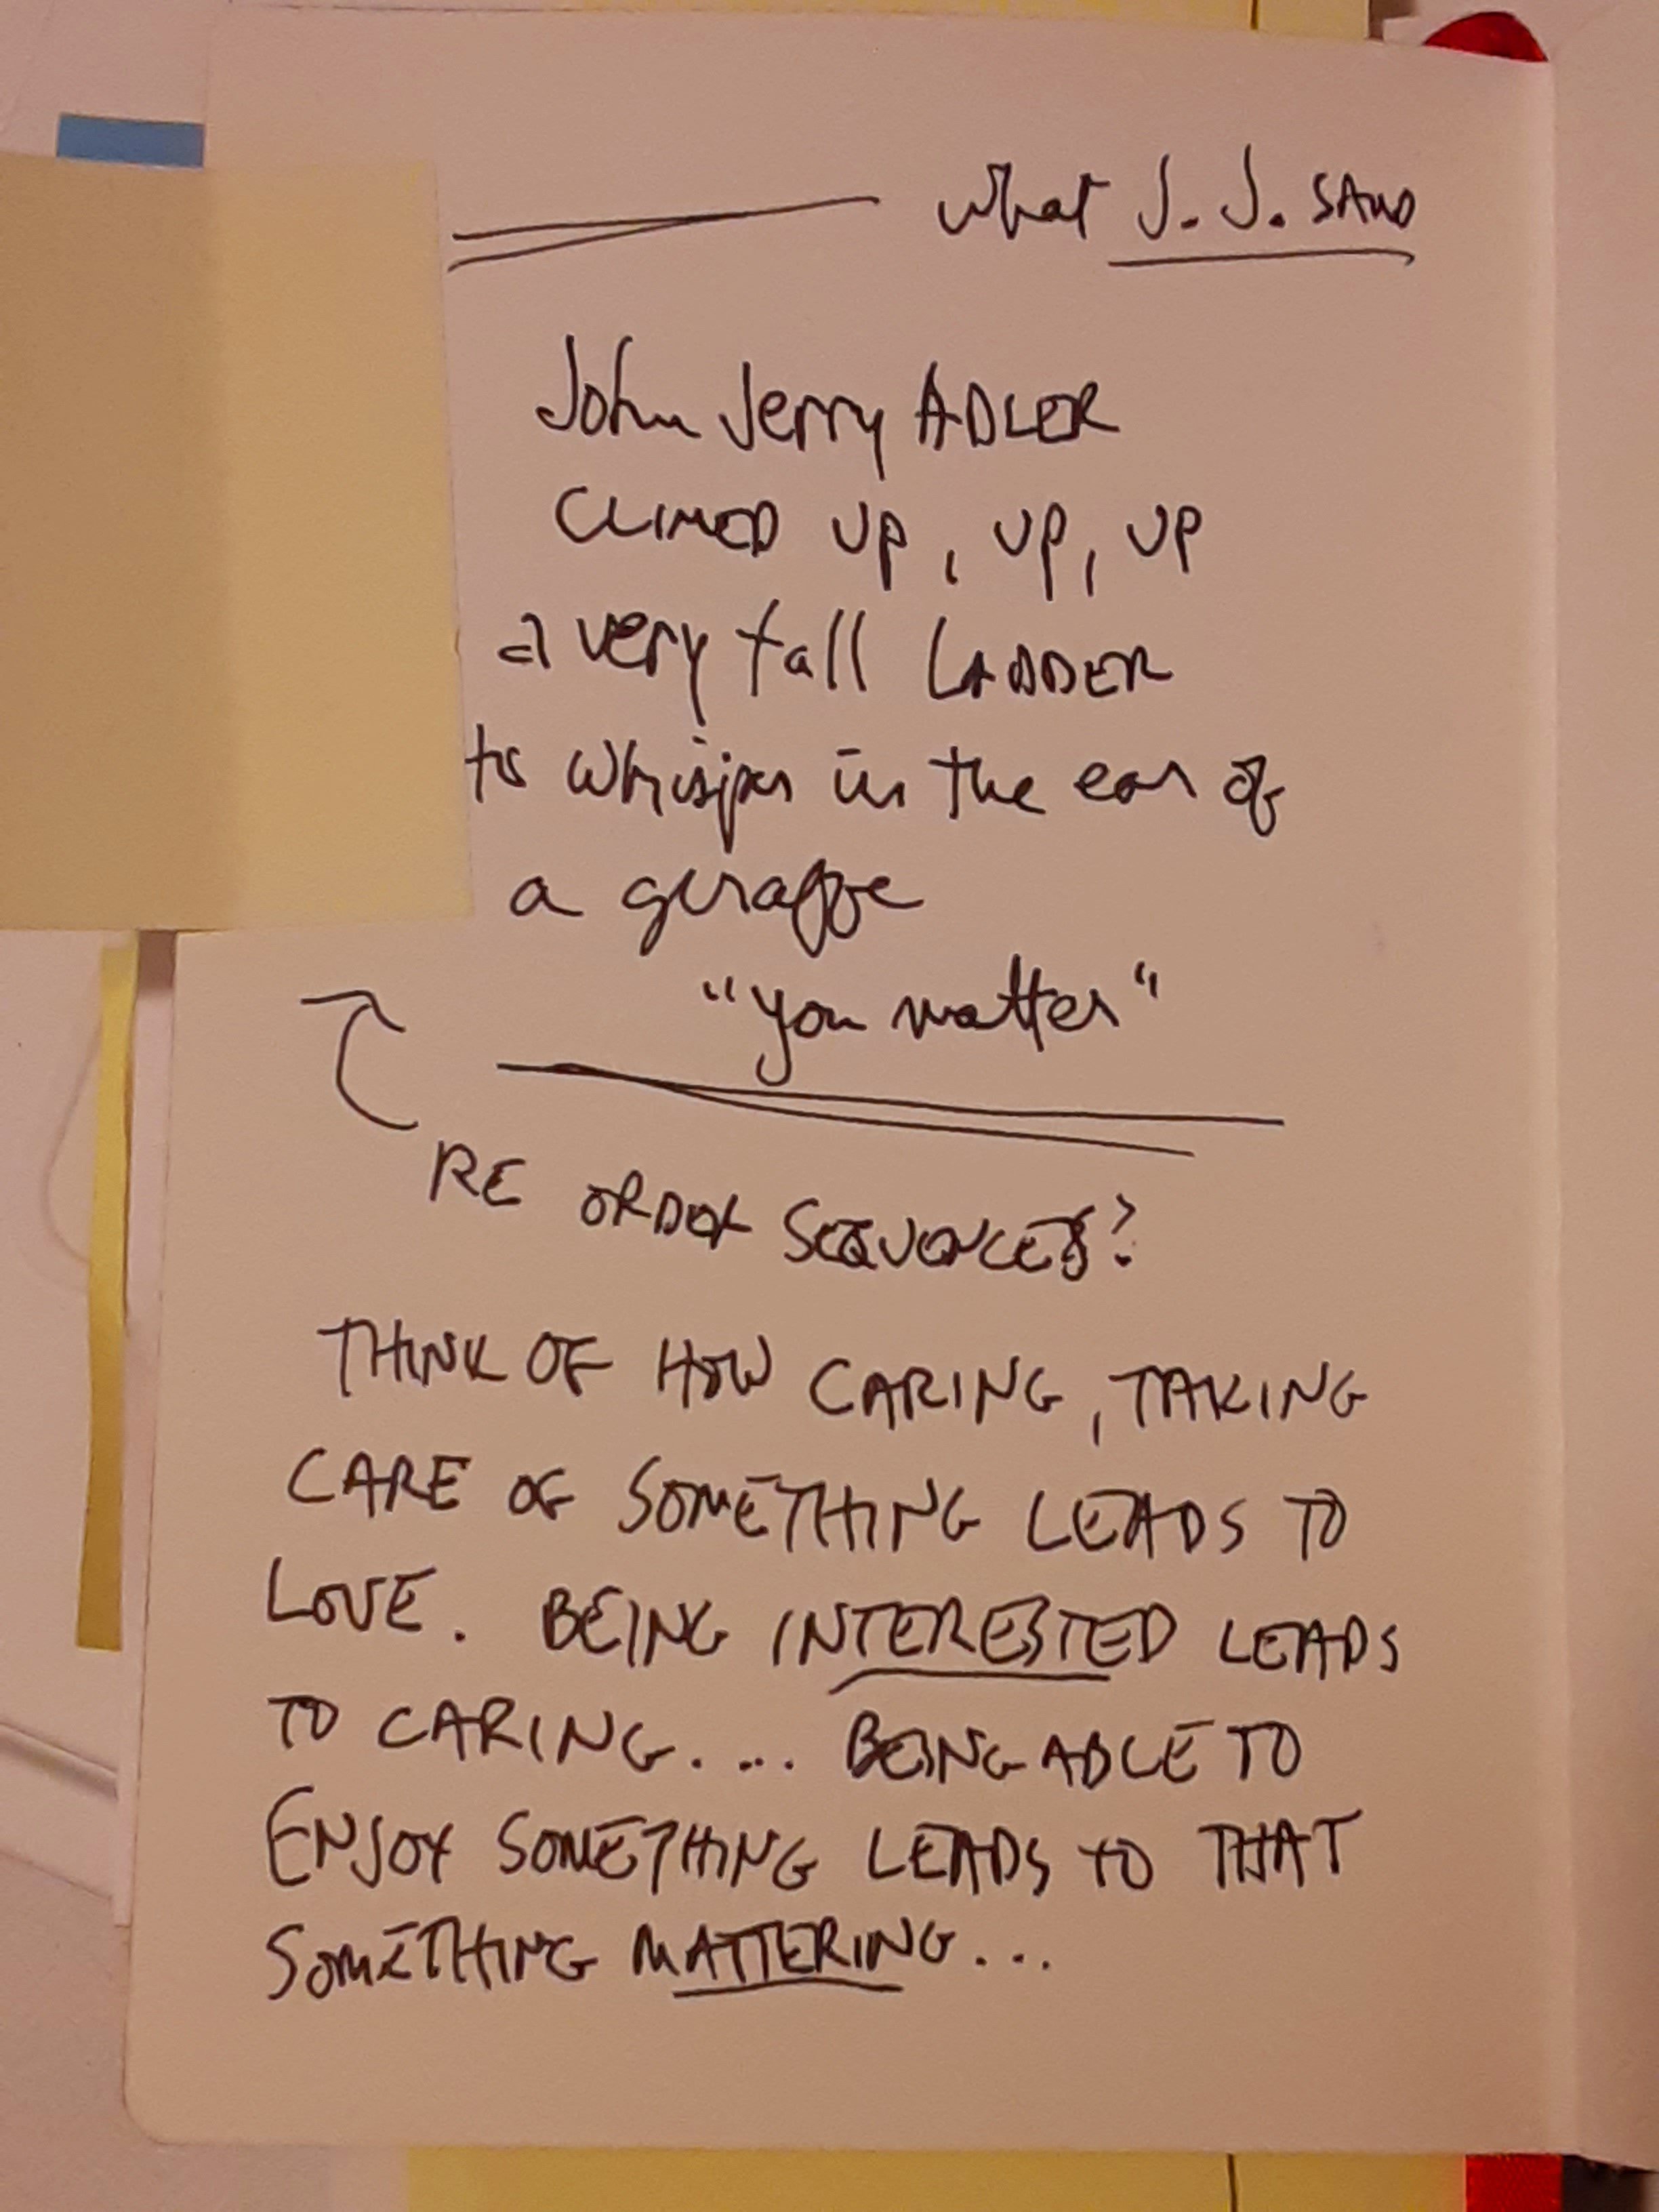 what J. J. SAID
John Jerry ADLER
CLIMED UP, UP, UP
a very tall LADDER
to whisper in the ear of
a giraffe
"you matter"
RE ORDER SEQUENCES?
THINK OF HOW CARING, TAKING
CARE OF SOMETHING LEADS TO
LOVE. BEING INTERESTED LEADS
TO CARING.... BEING ABLE TO
ENJOY SOMETHING LEADS TO THAT
SOMETHING MATTERING...